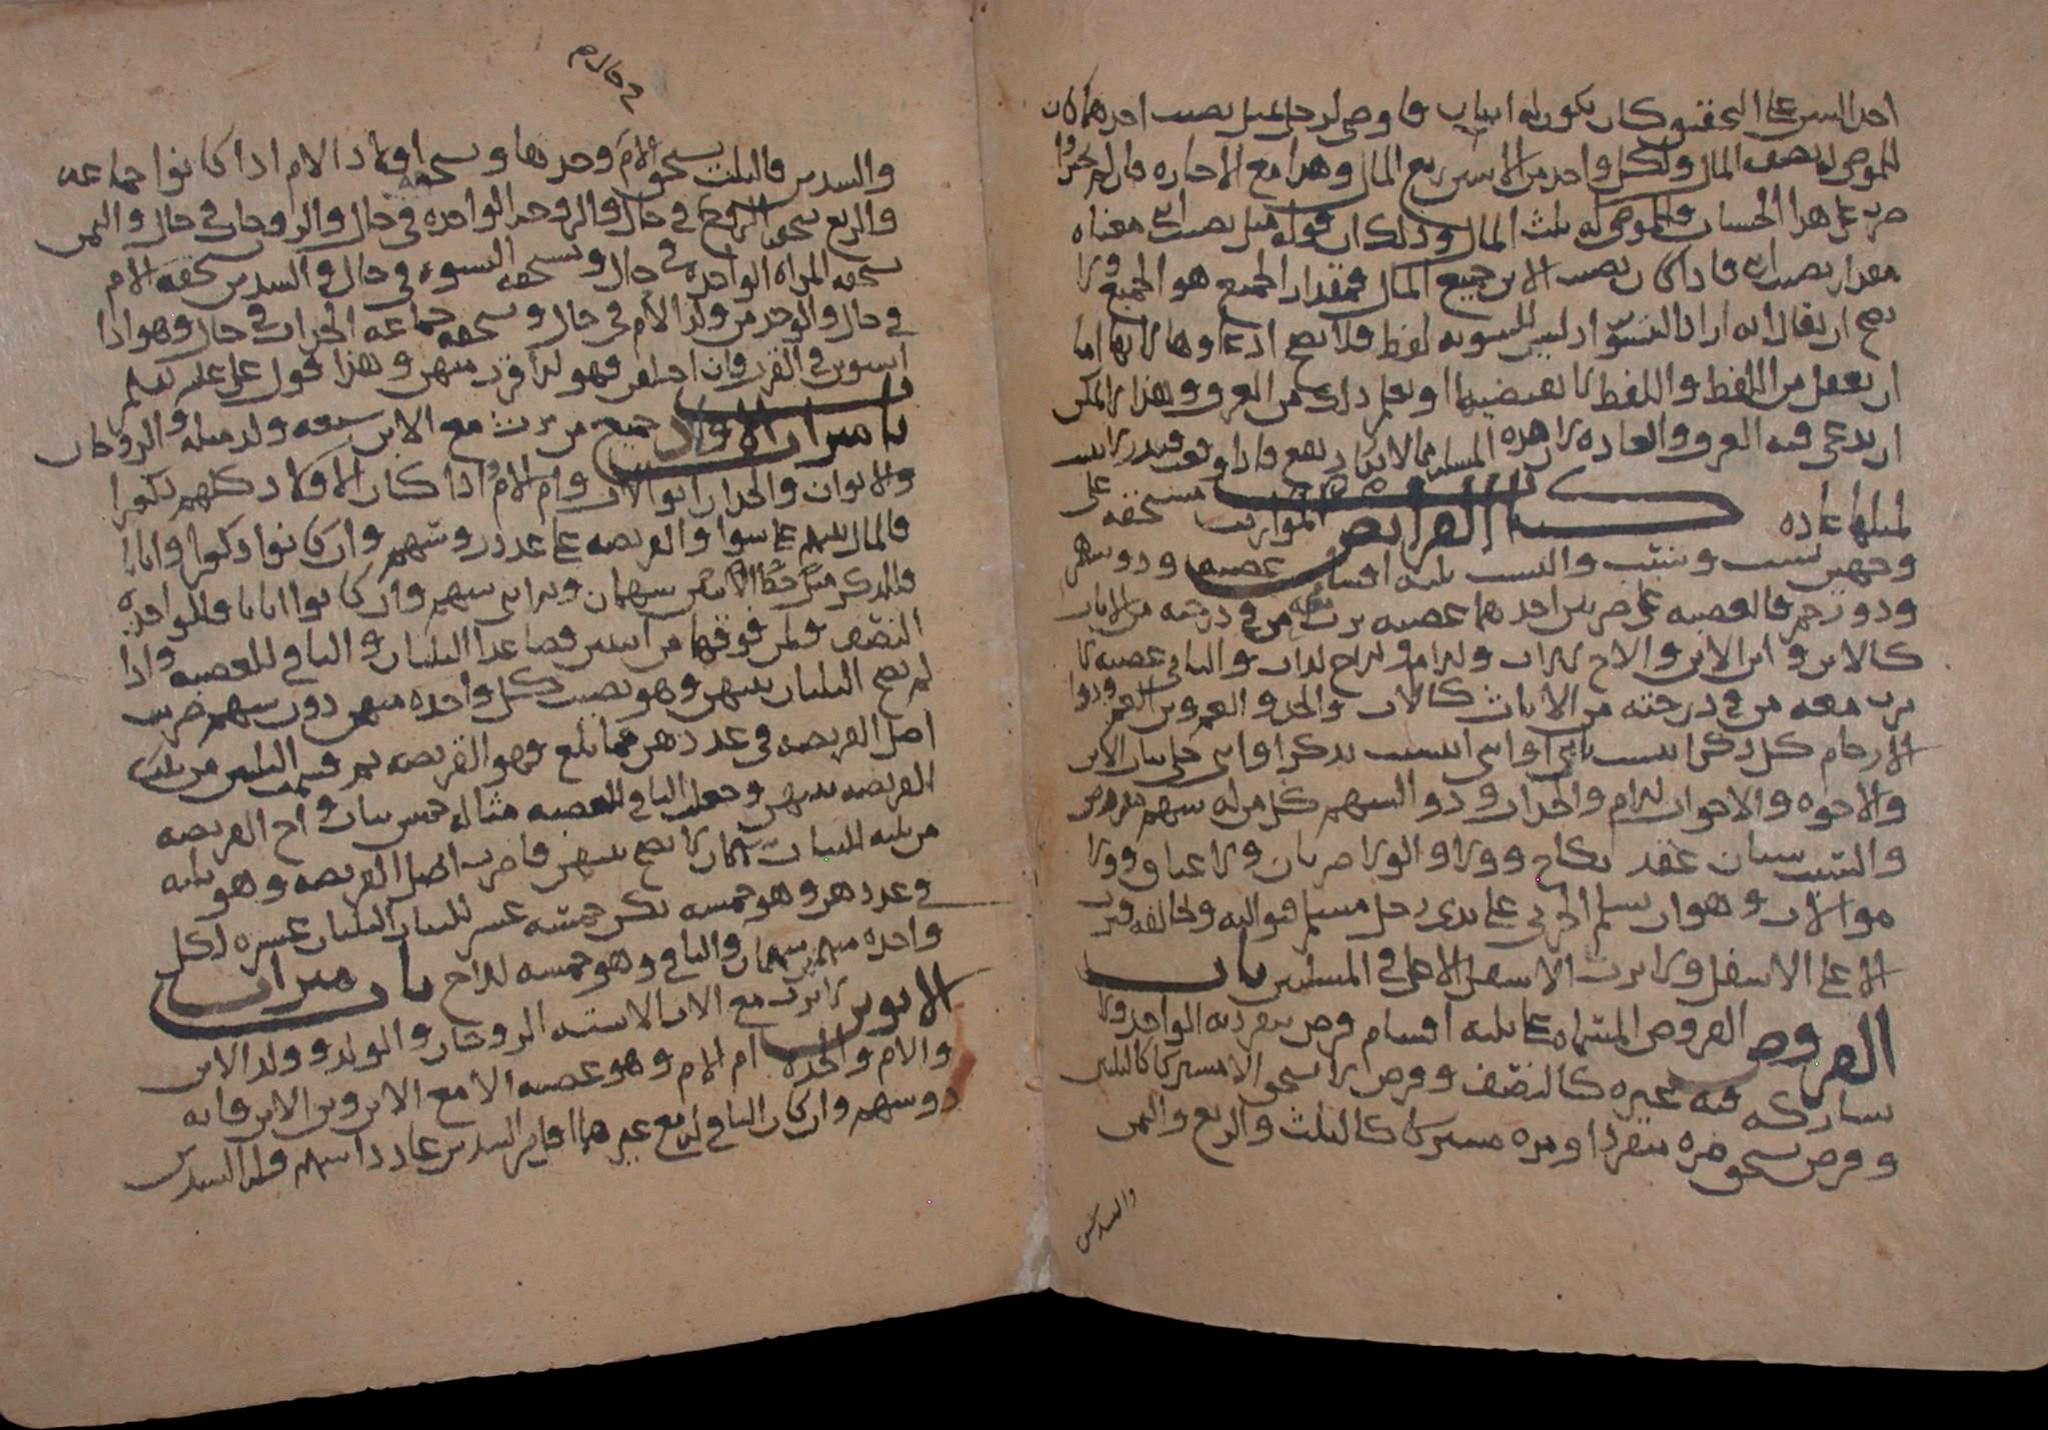 احد السن على التحقيق كان يكون له ابنان فاوصى لرجل بمثل نصيب احدهما كان
للموصى له نصف المال ولكل واحد من الابنين ربع المال وهذا مع الاجازه فان لم يجيزوا
ضرب على هذا الحساب وللموصى له ثلث المال وذلك ان قوله مثل نصيب ابنى معناه
مقدار نصيب ابنى فاذا كان نصيب الابن جميع المال فمقدار الجميع هو الجميع ولا
يصح ان يقال انه اراد التسويه اذ ليس للتسويه لفظ فلا يصح ادعاوها لانها اما
ان تعقل من اللفظ واللفظ لا يقتضيها او يعلم ذلك من العرف وهذا لا يمكن
ان يدعى فيه العرف والعاده لان هذه المسله مما لا يكاد يقع فاذا وقعت فيندر لا يثبت
لمثلها عاده كتاب الفرايض المواريث مستحقه على
وجهين نسب وسبب والنسب ثلثه اقسام عصبه وذو سهم
وذو رحم فالعصبه على ضربين احدهما عصبه يرث معه من في درجته من الاناث
كالابن وابن الابن والاخ لاب وام والاخ لاب والثاني عصبه لا
يرث معه من في درجته من الاناث كالاب والجد والعم وبني العم وذوا
الارحام كل ذكر انتسب بانثى او انثى انتسبت بذكر او انثى خلى بنات الابن
والاخوه والاخوات لام والجدات وذو السهم كل من له سهم مفروض
والسبب سببان عقد نكاح وولا والولا ضربان ولا عتاق وولا
موالاه وهو ان يسلم الحربي على يدى رجل مسلم فيواليه ويحالفه فيرث
الاعلى الاسفل ولا يرث الاسفل الاعلى في المسلمين باب
الفروض الفروض المسماه على ثلثه اقسام فرض ينفرد به الواحد ولا
يشاركه فيه غيره كالنصف وفرض لا يستحق الا مشتركا كالثلثين
وفرض يستحق مره منفردا ومره مشتركا كالثلث والربع والثمن
والسدس
والسدس فالثلث يستحق الام وحدها ويستحقه اولاد الام اذا كانوا جماعه
والربع يستحقه الزوج في حال والزوجه الواحده في حال والزوجات في حال والثمن
تستحقه المراه الواحده في حال وتستحقه النسوه في حال والسدس تستحقه الام
في حال والواحد من ولد الام في حال ويستحقه جماعه الجدات في حال وهو اذا
استوين في القرب وان اختلفن فهو لاقرب منهن وهذا قول علي عليه السلم
باب ميراث الاولاد جميع من يرث مع الابن سبعه ولد مثله والزوجان
والابوان والجدان ابو الاب وام الام اذا كان الاولاد كلهم ذكورا
فالمال بينهم على سوا والفريضه على عدد روسهم وان كانوا ذكورا واناثا
فللذكر مثل حظ الانثيين سهمان وللانثى سهم وان كانوا اناثا فللواحده
النصف ولمن فوقها من اثنتين فصاعدا الثلثان والباقي للعصبه واذا
لم يصح الثلثان بينهن وهو نصيب كل واحده منهن دون سهم ضربت
اصل الفريضه في عددهن فما بلغ فهو الفريضه ثم قسمت الثلثين من تلك
الفريضه بينهن وجعلت الباقي للعصبه مثاله خمس بنات واخ الفريضه
من ثلثه للبنات سهمان لا يصح بينهن فاضرب اصل الفريضه وهو ثلثه
في عددهن وهو خمسه يكن خمسه عشر للبنات الثلثان عشره لكل
واحده منهن سهمان والباقي وهو خمسه للاخ باب ميراث
الابوين لا يرث مع الاب الا سته الزوجان والولد وولد الابن
والام والجده ام الام وهو عصبه الا مع الابن وابن الابن فانه
ذو سهم وان كان الباقي لم يقع غيرهما اقل من السدس عاد ذا سهم وله السدس